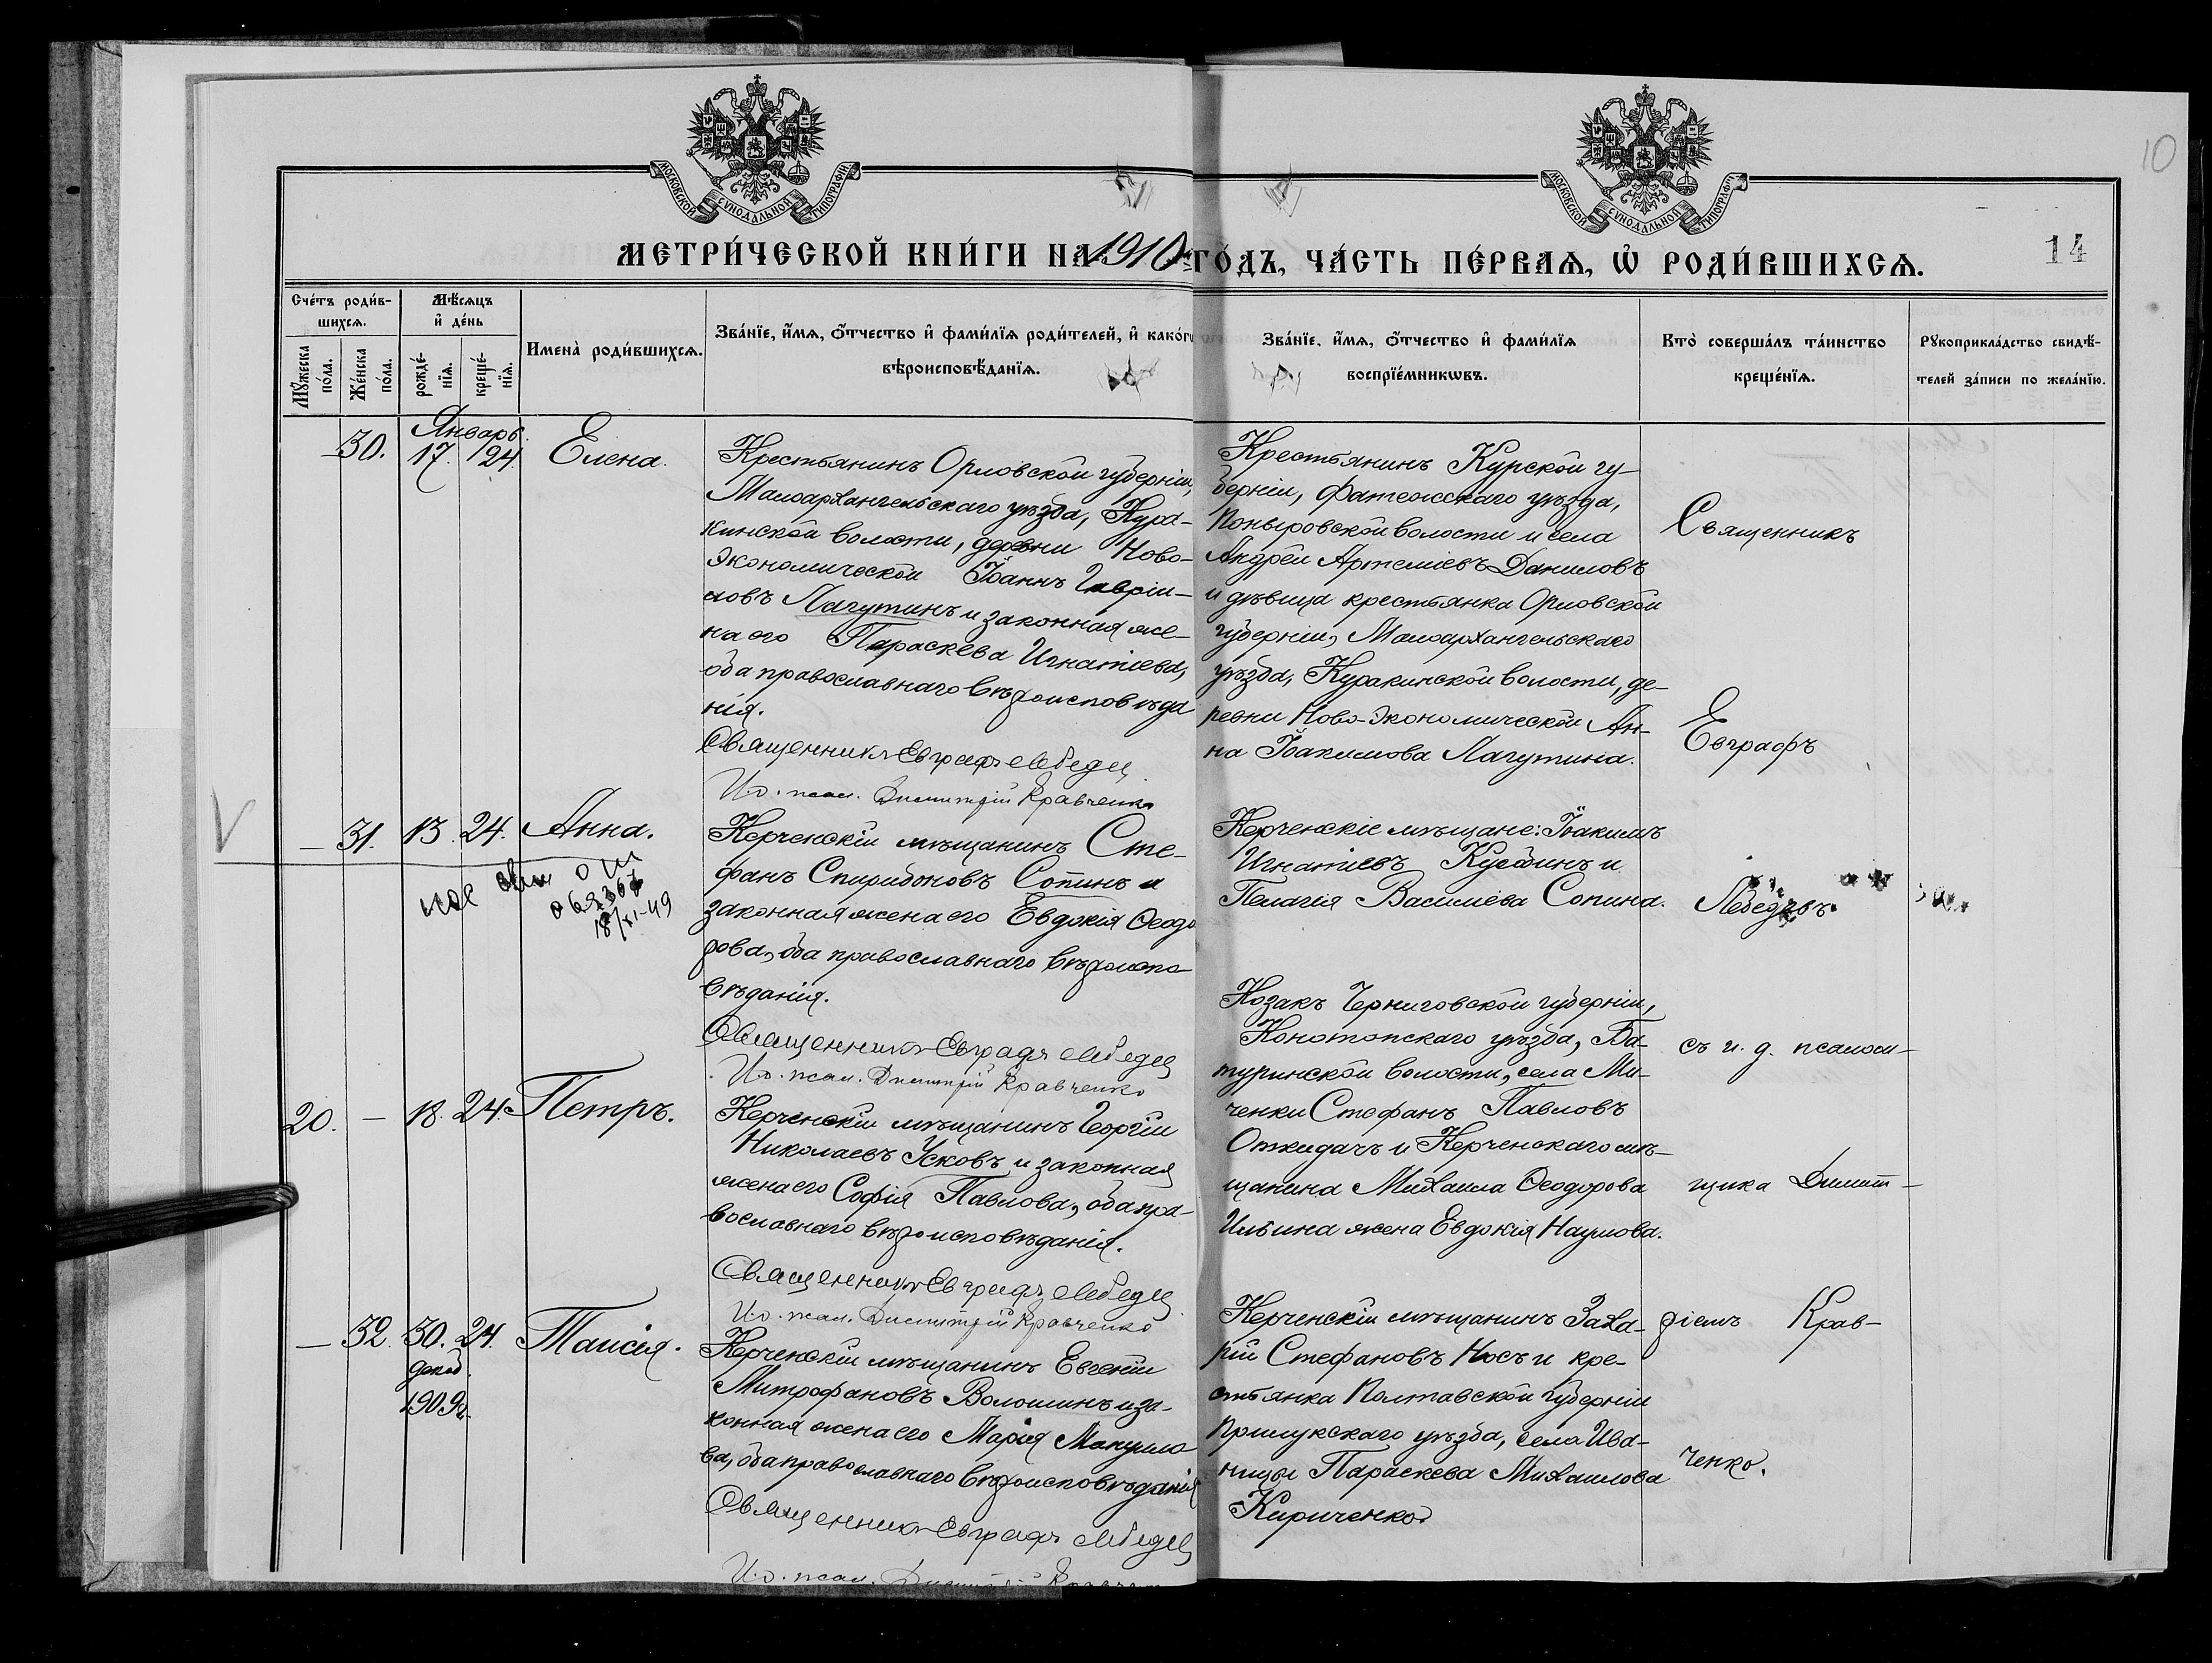 10
14
МОСКОВСКОЙ СѴНОДАЛЬНОЙ ТИПОГРАФІИ
МОСКОВСКОЙ СѴНОДАЛЬНОЙ ТИПОГРАФІИ
МЕТРИ́ЧЕСКОЙ КНИ́ГИ НА 1910 ГО́ДЪ, ЧА́СТЬ ПЕ́РВАѦ, Ѽ РОДИ́ВШИХСѦ.
Сче́тъ роди́в-
шихсѧ.
Мꙋ́жеска
по́ла.
Же́нска
по́ла.
Мѣ́сѧцъ
и҆ де́нь
рожде́-
нїѧ.
креще́-
нїѧ.
Имена̀ роди́вшихсѧ.
Зва́нїе, и҆́мѧ, ѻ҆́тчество и҆ фами́лїѧ роди́телей, и҆ како́гѡ
вѣроисповѣ́данїѧ.
Зва́нїе, и҆́мѧ, ѻ҆́тчество и҆ фами́лїѧ
воспрїе́мникѡвъ.
Кто̀ соверша́лъ та́инство
креще́нїѧ.
Рꙋкоприкла́дство свидѣ́-
телей за́писи по жела́нїю.
Январь.
30. 17. 24. Елена.
Крестьянинъ Орловской губерніи,
Малоархангельскаго уѣзда, Кура-
кинской волости, деревни Ново-
Экономической Іоаннъ Гавріи-
ловъ Лагутинъ и законная же-
на его Параскева Игнатіева,
оба православнаго вѣроисповѣда
нія.
Священникъ Евграфъ Лебедев
И.д. псал. Димитрій Кравченко
Крестьянинъ Курской гу-
берніи, Фатежскаго уѣзда,
Поныровской волости и села
Андрей Артеміевъ Даниловъ
и дѣвица крестьянка Орловской
губерніи, Малоархангельскаго
уѣзда, Куракинской волости, де-
ревни Ново-Экономической Ан-
на Іоакимова Лагутина.
— 31. 13. 24. Анна.
18/XI-49
Керченскій мѣщанинъ Сте-
фанъ Спиридоновъ Сопинъ и
законная жена его Евдокія Ѳеодо
рова, оба православнаго вѣроиспо-
вѣданія.
Священникъ Евграфъ Лебедев
И.д. псал. Димитрій Кравченко
Керченскіе мѣщане: Іоакимъ
Игнатіевъ и
Пелагія Василіева Сопина.
20. — 18. 24. Петръ.
Керченскій мѣщанинъ Георгій
Николаевъ Усковъ и законная
жена его Софія Павлова, оба пра-
вославнаго вѣроисповѣданія.
Священникъ Евграфъ Лебедев
И.д. псал. Димитрій Кравченко
Козакъ Черниговской губерніи,
Конотопскаго уѣзда, Ба-
туринской волости, села Ми-
ченки Стефанъ Павловъ
Откидачъ и Керченскаго мѣ-
щанина Михаила Ѳеодорова
Ильина жена Евдокія Наумова.
— 32. 30. 24. Таисія.
декаб.
1909 г.
Керченскій мѣщанинъ Евгеній
Митрофановъ Волошинъ и за-
конная жена его Марія
ва, оба православнаго вѣроисповѣданія
Священникъ Евграфъ Лебедев
И.д. псал. Димитрій Кравченко
Керченскій мѣщанинъ Заха-
рій Стефановъ Носъ и кре-
стьянка Полтавской губерніи
Прилукскаго уѣзда, села Ива-
ницы Параскева Михаилова
Кириченко.
Священникъ
Евграфъ
Лебедевъ
съ и. д. псалом-
щика Димит-
ріемъ Крав-
ченко.